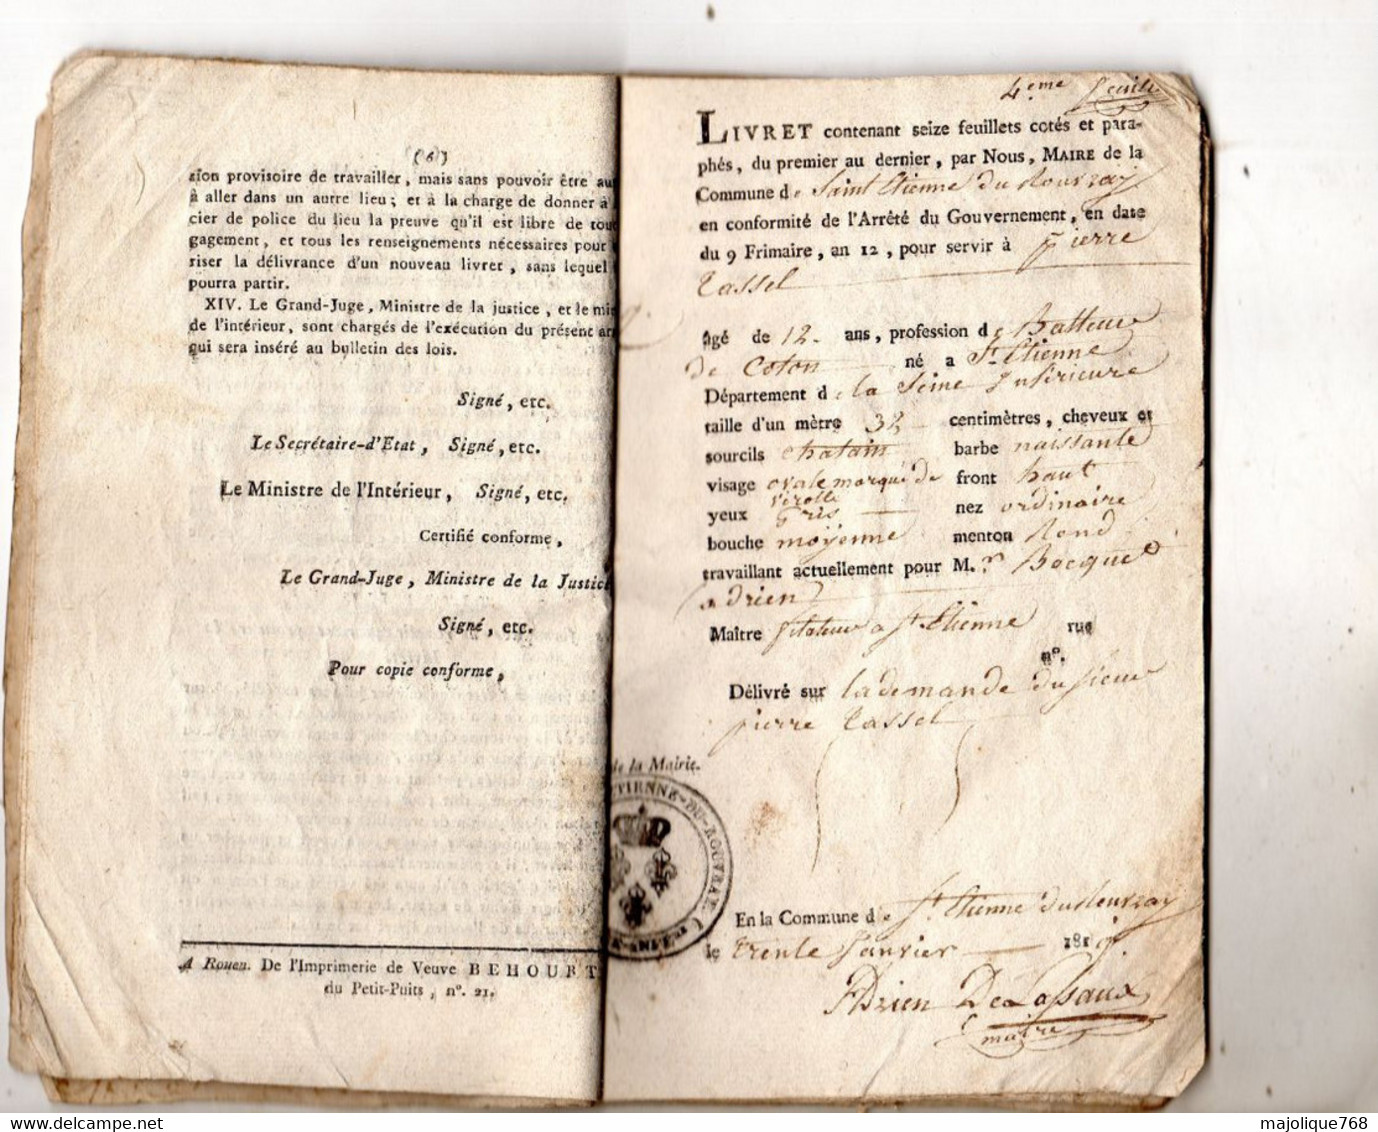 (6)
sion provisoire de travailler, mais sans pouvoir être au
à aller dans un autre lieu; et à la charge de donner à
cier de police du lieu la preuve qu'il est libre de tou
gagement, et tous les renseignemens nécessaires pour
riser la délivrance d'un nouveau livret, sans lequel
pourra partir.
XIV. Le Grand-Juge, Ministre de la justice, et le mi
de l'intérieur, sont chargés de l'exécution du présent ar
qui sera inséré au bulletin des lois.
Signé, etc.
Le Secrétaire-d'Etat, Signé, etc.
Le Ministre de l'Intérieur, Signé, etc.
Certifié conforme,
Le Grand-Juge, Ministre de la Justice
Signé, etc.
Pour copie conforme,
A Rouen. De l'Imprimerie de Veuve BEHOURT
du Petit-Puits, n°. 21.
4eme
LIVRET contenant seize feuillets cotés et para-
phés, du premier au dernier, par Nous, MAIRE de la
Commune de Saint Etienne du Rouvray
en conformité de l'Arrêté du Gouvernement, en date
du 9 Frimaire, an 12, pour servir à pierre
Tassel
âgé de 12 ans, profession de Batteur
de Coton né a St. Etienne
Département de la Seine Inférieure
taille d'un mètre 32 centimètres, cheveux et
sourcils chatain barbe naissante
visage ovale marqué de verolle front haut
yeux Gris nez ordinaire
bouche moyenne menton Rond
travaillant actuellement pour M.r Bocquet
adrien
Maître filateur a St. Etienne rue
n°.
Délivré sur la demande du sieur
pierre Tassel
de la Mairie.
TIENNE-DU-ROUVRAY
En la Commune de St. Etienne du Rouvray
le trente Janvier 1819.
Adrien DeLaSsaux
maire
majolique768